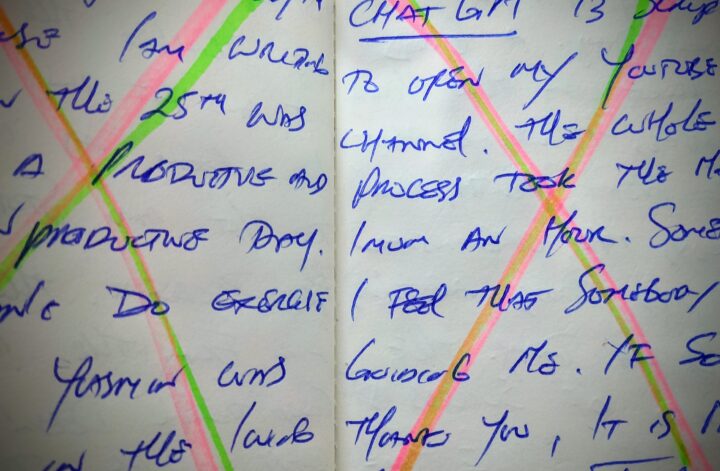 I AM WRITING
THE 25TH WAS
A PRODUCTIVE AND
PRODUCTIVE DAY.
DO EXERCISE
YLASMIN WAS
IN THE
CHAT GPT IS
TO OPEN MY YOUTUBE
CHANNEL. THE WHOLE
PROCESS TOOK THE
IMUM AN HOUR. SOME
I FEEL THAT SOMEBODY
GUIDING ME. IF SO
THANK YOU, IT IS